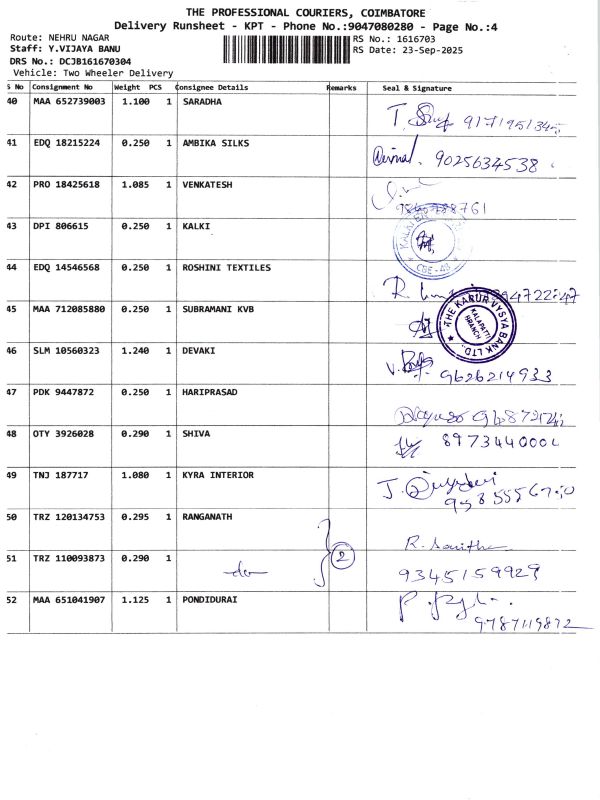 THE PROFESSIONAL COURIERS, COIMBATORE
Delivery Runsheet - KPT - Phone No.:9047080280 - Page No.:4
Route: NEHRU NAGAR RS No.: 1616703
Staff: Y.VIJAYA BANU RS Date: 23-Sep-2025
DRS No.: DCJB161670304
Vehicle: Two Wheeler Delivery
S No Consignment No Weight PCS Consignee Details Remarks Seal & Signature
40 MAA 652739003 1.100 1 SARADHA
41 EDQ 18215224 0.250 1 AMBIKA SILKS
9025634538
42 PRO 18425618 1.085 1 VENKATESH
43 DPI 806615 0.250 1 KALKI
44 EDQ 14546568 0.250 1 ROSHINI TEXTILES
45 MAA 712085880 0.250 1 SUBRAMANI KVB
THE KARUR VYSYA BANK LTD.
KALAPATTI
BRANCH
46 SLM 10560323 1.240 1 DEVAKI
9626214933
47 PDK 9447872 0.250 1 HARIPRASAD
48 OTY 3926028 0.290 1 SHIVA
49 TNJ 187717 1.080 1 KYRA INTERIOR
50 TRZ 120134753 0.295 1 RANGANATH
51 TRZ 110093873 0.290 1
2
9345159929
52 MAA 651041907 1.125 1 PONDIDURAI
9787119872